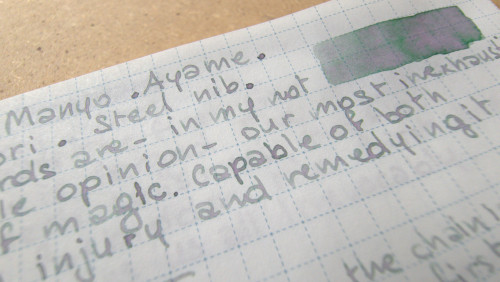 Manyo . Ayame .
ori . Steel nib .
rds are - in my not
le opinion - our most inexhausi
f magic. Capable of both
injury and remedying it
the chain
first